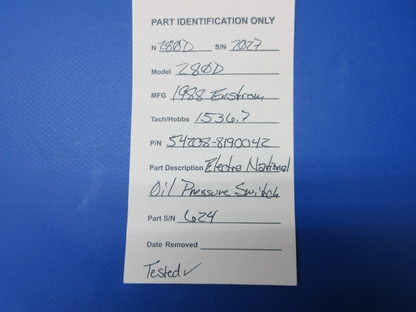 PART IDENTIFICATION ONLY
N 280D S/N 2027
Model 280D
MFG 1988 Enstrom
Tach/Hobbs 1536.7
P/N 54208-8190042
Part Description Electro National
Oil Pressure Switch
Part S/N 624
Date Removed
Tested ✓